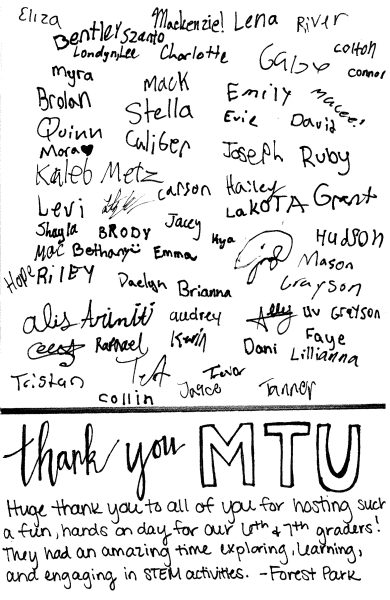 Eliza Mackenzie! Lena River
Bentley Szanto
Londyn Lee Charlotte Gabe colton
connor
Myra
Mack
Brolan Emily Macee!
Stella Evie David
Quinn Caliber
Mora♥ Joseph Ruby
Kaleb Metz
Carson Hailey
Levi LaKOTA Grant
Shayla BRODY Jacey
Kya HuDSON
Mac Bethany Emma
Mason
Hope RiLEY Daelyn Brianna Grayson
alis Ariniti audrey Ally uv Grayson
Raphael Kevin Faye
Dani Lillianna
Tristan TeA Trevor
Jayce Tanner
Collin
thank you MTU
Huge thank you to all of you for hosting such
a fun, hands on day for our 6th & 7th graders!
They had an amazing time exploring, learning,
and engaging in STEM activities. -Forest Park